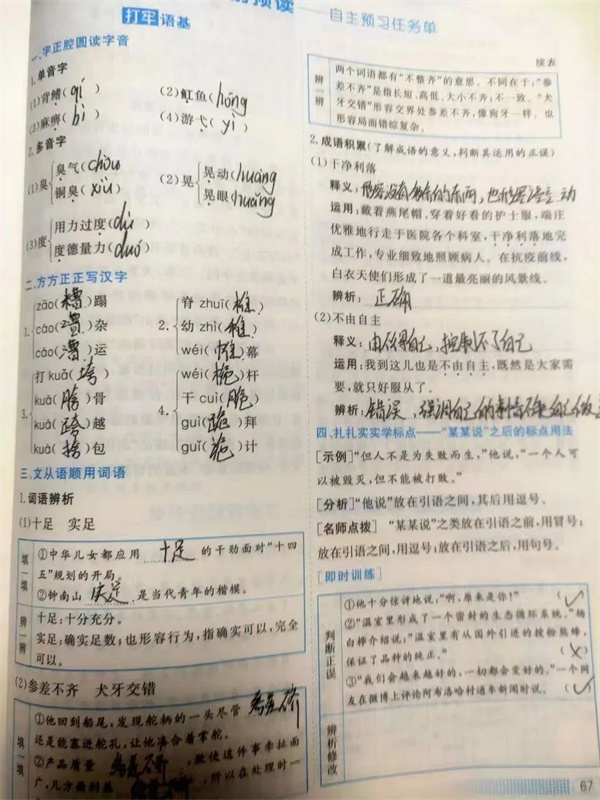 预读——自主预习任务单
打牢 语基
一、字正腔圆读字音
1. 单音字
(1)背鳍(qí)
(2)魟鱼(hōng)
(3)麻痹(bì)
(4)游弋(yì)
2. 多音字
(1)臭 臭气(chòu)
铜臭(xiù)
(2)晃 晃动(huàng)
晃眼(huǎng)
(3)度 用力过度(dù)
度德量力(duó)
二、方方正正写汉字
1. zāo(糟)蹋
cáo( )杂
cáo(漕)运
2. 脊 zhuī(椎)
幼 zhì(稚)
wéi(帷)幕
3. 打 kuǎ(垮)
kuà(胯)骨
kuà(跨)越
kuà(挎)包
4. wéi(桅)杆
干 cuì(脆)
guì(跪)拜
guǐ(诡)计
三、文从语顺用词语
1. 词语辨析
(1)十足 实足
填一填
①中华儿女都应用 十足 的干劲面对“十四
五”规划的开局。
②钟南山 实足 是当代青年的楷模。
辨一辨
十足:十分充足。
实足:确实足数;也形容行为,指确实可以,完全
可以。
(2)参差不齐 犬牙交错
填一填
①他回到船尾,发现舵柄的一头尽管
还是能塞进舵孔,让他凑合着掌舵。
②产品质量 ,致使这件事牵扯面
广,几方面到基 ,所以在处理时一
续表
辨一辨
两个词语都有“不整齐”的意思。不同在于:“参
差不齐”是指长短、高低、大小不齐;不一致。“犬
牙交错”形容交界处参差不齐,像狗牙一样。也
形容局面错综复杂。
2. 成语积累(了解成语的意义,判断其运用的正误)
(1)干净利落
释义:形容没有多余的东西,也形容 动
运用:戴着燕尾帽、穿着好看的护士服,端庄
优雅地行走于医院各个科室,干净利落地完
成工作,专业细致地照顾病人。在抗疫前线,
白衣天使们形成了一道最亮丽的风景线。
辨析:正确
(2)不由自主
释义:由不得自己,控制不了自己
运用:我到这儿也是不由自主,既然是大家需
要,就只好服从了。
辨析:错误,强调自己的事情不由自己做主
四、扎扎实实学标点——“某某说”之后的标点用法
[示例]“但人不是为失败而生,”他说,“一个人可
以被毁灭,但不能被打败。”
[分析]“他说”放在引语之间,其后用逗号。
[名师点拨] “某某说”之类放在引语之前,用冒号;
放在引语之间,用逗号;放在引语之后,用句号。
[即时训练]
判断正误
①他十分惊讶地说,“啊,原来是你!” (✓)
②“温室里形成了一个密封的生态循环系统。”杨
白桦介绍说:“温室里有从国外引进的授粉熊蜂,
保证了品种的纯正。” (×)
③“我们会越来越好的,一切都会变好的。”一个网
友在微博上评论阿布洛哈村通车新闻时说。 (✓)
辨析修改
67